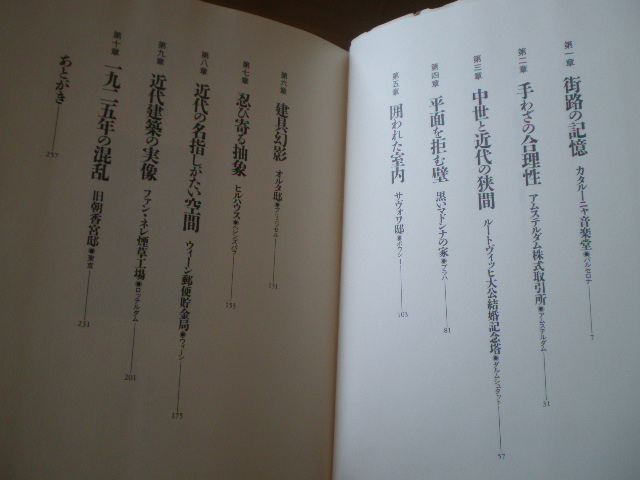 第一章 街路の記憶 カタルーニャ音楽堂◉バルセロナ 7
第二章 手わざの合理性 アムステルダム株式取引所◉アムステルダム 31
第三章 中世と近代の狭間 ルートヴィッヒ大公結婚記念塔◉ダルムシュタット 57
第四章 平面を拒む壁 黒いマドンナの家◉プラハ 81
第五章 囲われた室内 サヴォワ邸◉ポワシー 103
第六章 建具幻影 オルタ邸◉ブリュッセル 131
第七章 忍び寄る抽象 ヒルハウス◉ヘレンズバラ 155
第八章 近代の名指しがたい空間 ウィーン郵便貯金局◉ウィーン 175
第九章 近代建築の実像 ファン・ネレ煙草工場◉ロッテルダム 201
第十章 一九二五年の混乱 旧朝香宮邸◉東京 231
あとがき 257